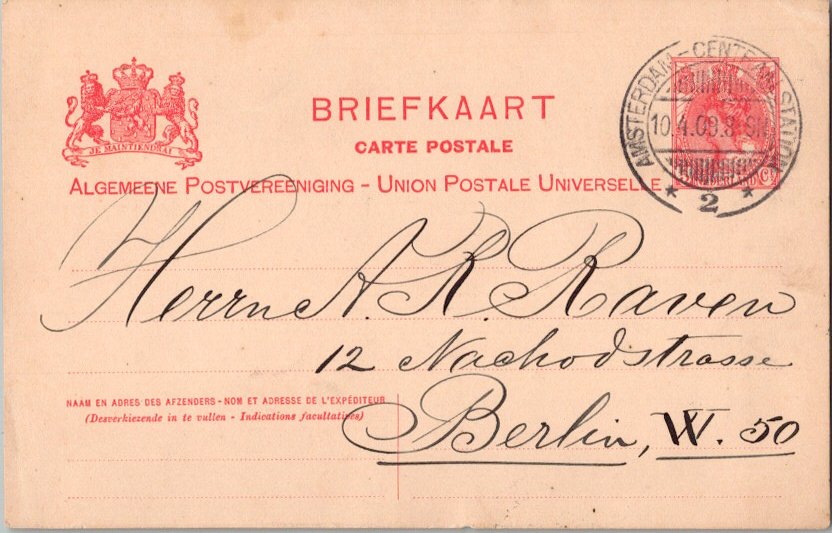 BRIEFKAART
CARTE POSTALE
ALGEMEENE POSTVEREENIGING - UNION POSTALE UNIVERSELLE
JE MAINTIENDRAI
AMSTERDAM-CENTRAAL STATION
10.4.09.8
* 2 *
Herrn A. R. Raven
12 Nachodstrasse
Berlin, W. 50
NAAM EN ADRES DES AFZENDERS - NOM ET ADRESSE DE L'EXPÉDITEUR
(Desverkiezende in te vullen - Indications facultatives)